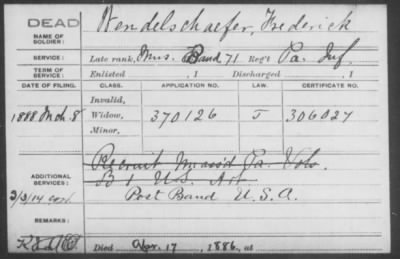 DEAD
Wendelschaefer, Frederick
NAME OF SOLDIER:
SERVICE: Late rank, Mus. Band 71 Reg't Pa. Inf.
TERM OF SERVICE: Enlisted , 1 Discharged , 1
DATE OF FILING. CLASS. APPLICATION NO. LAW. CERTIFICATE NO.
Invalid,
1888 Mch 8 Widow, 370126 J 306027
Minor,
Recruit Pa. Vols.
ADDITIONAL SERVICES: B 1 U.S. Art
Post Band U.S.A.
REMARKS:
Died Nov. 17, 1886, at